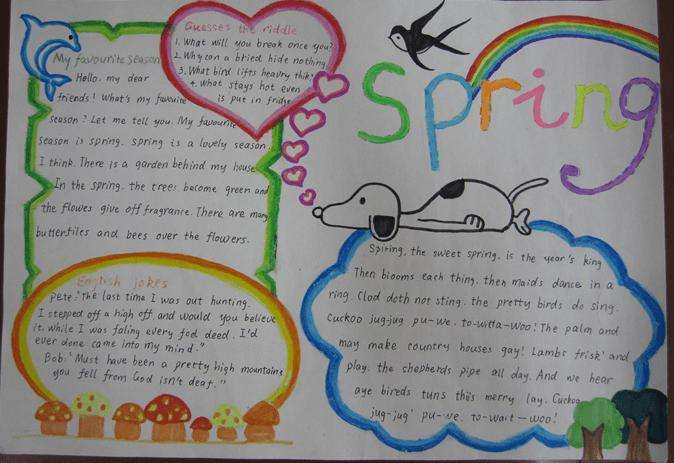 My favourite season
Hello. my dear
friends! What's my favorite
season? Let me tell you. My favourite
season is spring. spring is a lovely season.
I think. There is a garden behind my house
In the spring. the trees become green and
the flowes give off fragrance. There are many
butterflies and bees over the flowers.
Guesses the riddle
1. What will you break once you?
2. Why can a btried hide nothing
3. What bird lifts heavhy
4. what stays hot even
is put in fridge
Spring
English jokes
Pete: "The last time I was out hunting.
I stepped off a high off and would you believe
it. while I was faling every fod deed. I'd
ever done came into my mind."
Bob: "Must have been a pretty high mountains
you fell from God isn't deaf."
Spiring, the sweet spring. is the year's king
Then blooms each thing. then maids dance in a
ring. Clod doth not sting. the pretty birds do sing.
Cuckoo jug-jug pu-we. to-witta-woo! The palm and
may make country houses gay! Lambs frisk' and
play. the shepherds pipe all day. And we hear
aye bireds tuns this merry lay. Cuckoo
jug-jug' pu-we. to-wait-woo!